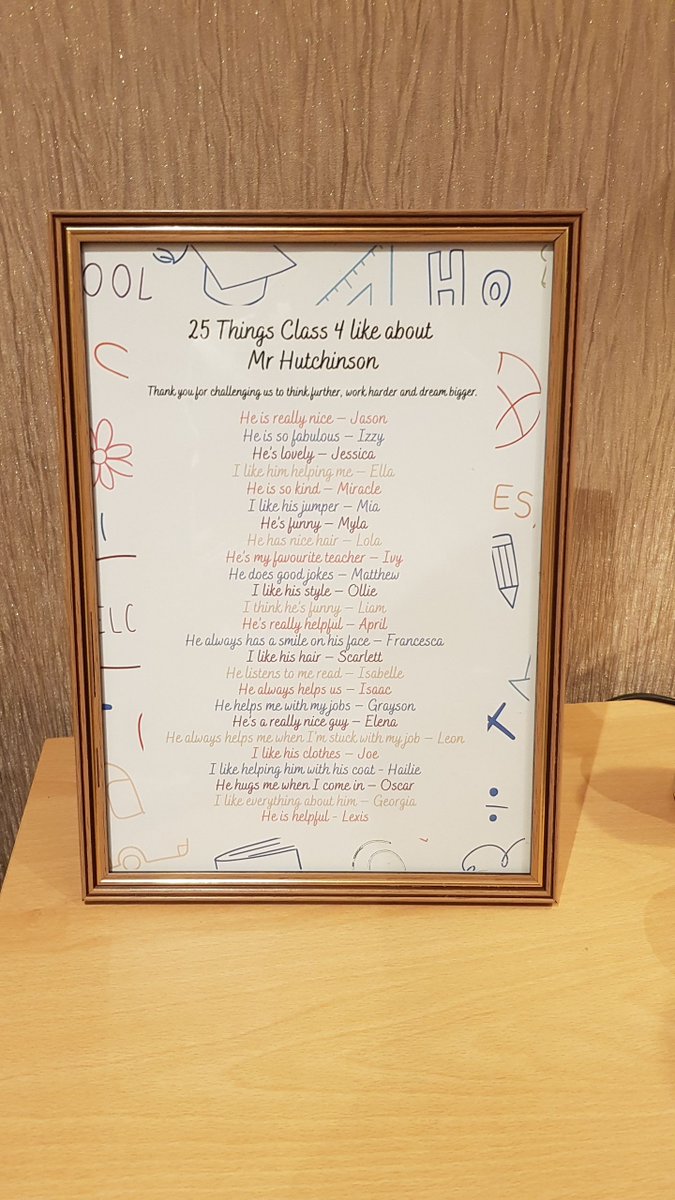 OOL
HO
25 Things Class 4 like about
Mr Hutchinson
Thank you for challenging us to think further, work harder and dream bigger.
He is really nice – Jason
He is so fabulous – Izzy
He's lovely – Jessica
I like him helping me – Ella
He is so kind – Miracle
I like his jumper – Mia
ES,
He's funny – Myla
He has nice hair – Lola
He's my favourite teacher – Ivy
He does good jokes – Matthew
I like his style – Ollie
I think he's funny – Liam
He's really helpful – April
He always has a smile on his face – Francesca
I like his hair – Scarlett
He listens to me read – Isabelle
He always helps us – Isaac
He helps me with my jobs – Grayson
He's a really nice guy – Elena
He always helps me when I'm stuck with my job – Leon
I like his clothes – Joe
I like helping him with his coat - Hailie
He hugs me when I come in – Oscar
I like everything about him – Georgia
He is helpful - Lexis